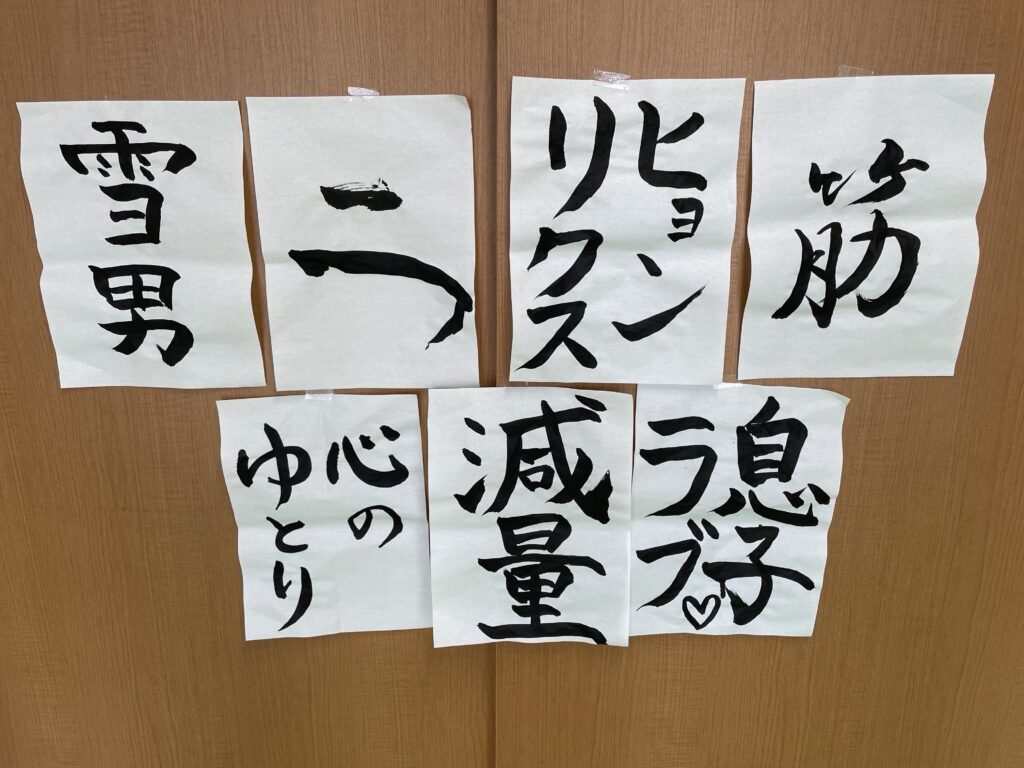 筋
ヒョン
リクス
一つ
雪男
息子
ラブ♡
減量
心の
ゆとり